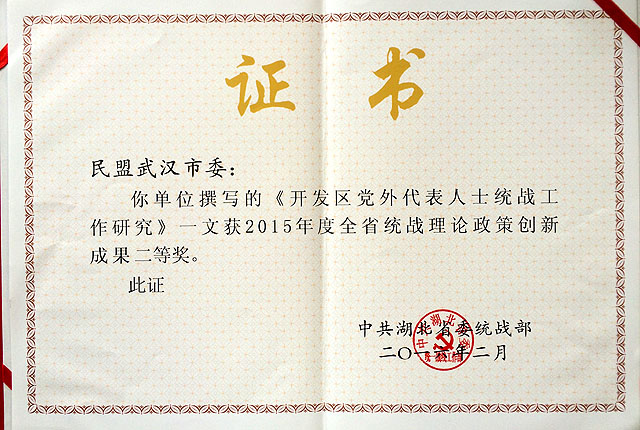 证书
民盟武汉市委：
你单位撰写的《开发区党外代表人士统战工
作研究》一文获2015年度全省统战理论政策创新
成果二等奖。
此证
中共湖北省委统战部
二〇一六年二月